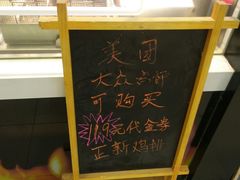 美团
大众点评
可购买
11.9元代金券
正新鸡排